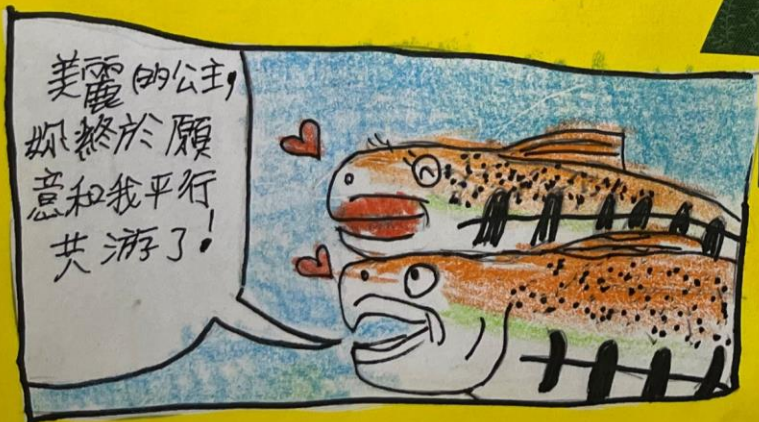 美麗的公主,
妳終於願
意和我平行
共游了!